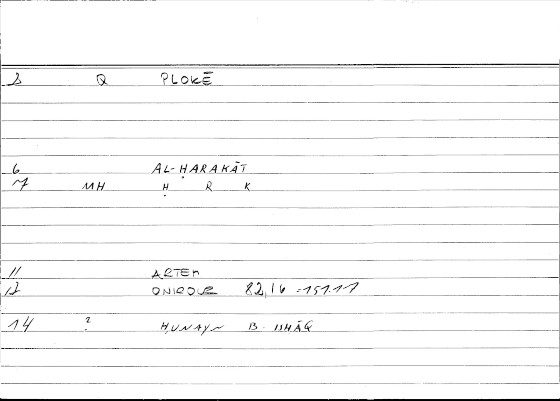 2 Q PLOKĒ
6 AL-ḤARAKĀT
7 MH Ḥ R K
11 ARTEM
12 ONIROCR 82,16 = 151.11
14 ? ḤUNAYN B. ISḤĀQ